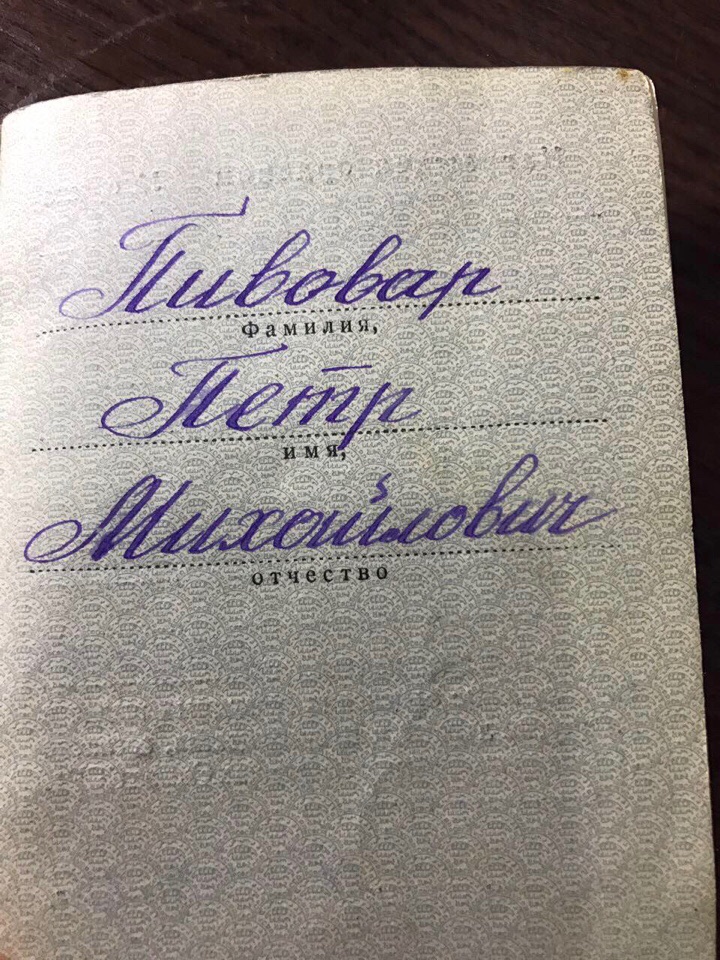 Пивовар
Фамилия,
Петр
имя,
Михайлович
отчество